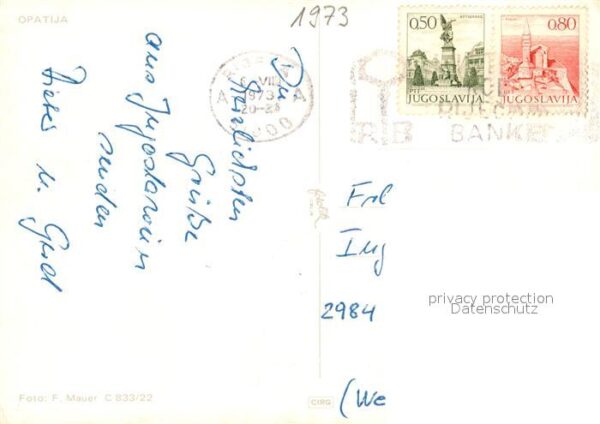 OPATIJA
1973
0,50
0,80
JUGOSLAVIJA
JUGOSLAVIJA
VIII
1973
20-24
A
A
BANKE
Die
herzlichsten
Grüße
aus Jugoslawien
senden
Dieter u. Gerd
Frl
Ing
2984
(We
privacy protection
Datenschutz
Foto: F. Mauer C 833/22
CIRG